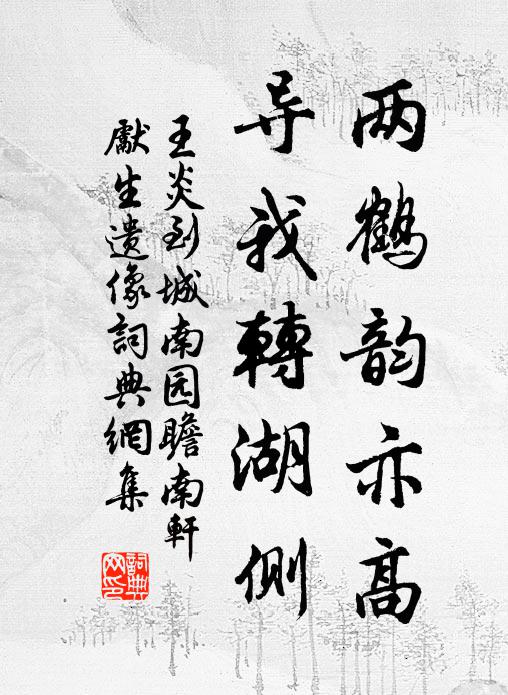 两鹤韵亦高
导我轉湖侧
王炎到城南园瞻南軒
獻生遗像詞典網集
詞典网印